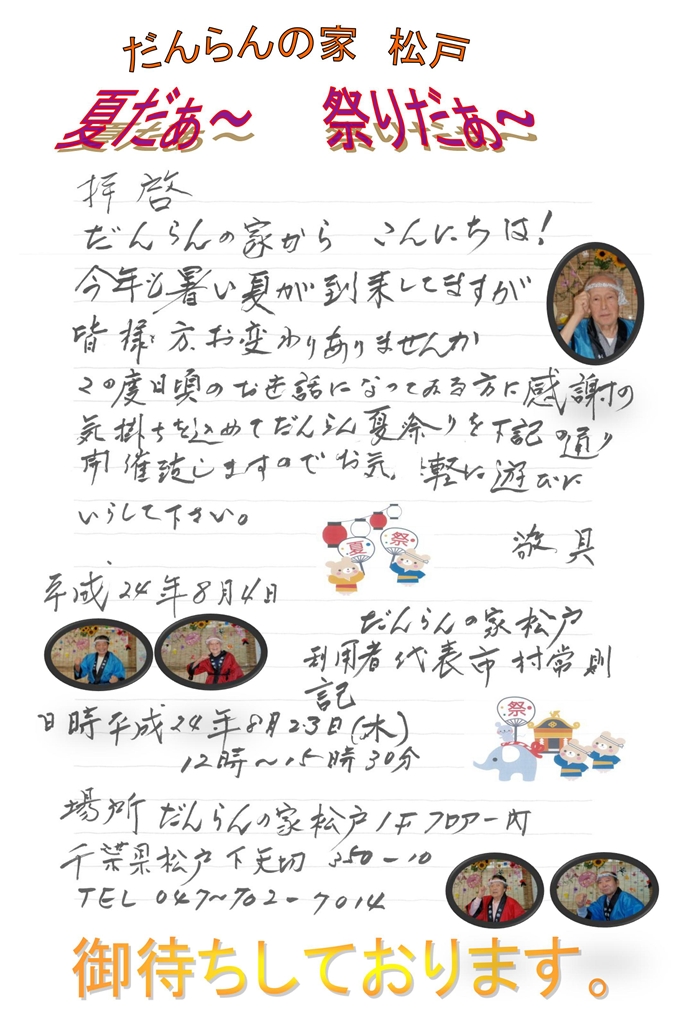 だんらんの家 松戸
夏だぁ～ 祭りだぁ～
拝啓
だんらんの家から こんにちは!
今年も暑い夏が到来してますが
皆様方、お変わりありませんか
この度日頃のお世話になってみる方に感謝の
気持ちを込めてだんらん夏祭りを下記の通り
開催致しますのでお気軽に遊びに
いらして下さい。
敬具
平成24年8月4日
だんらんの家松戸
利用者代表市村常則
記
日時平成24年8月23日(木)
12時～15時30分
場所 だんらんの家松戸1Fフロアー内
千葉県松戸下矢切 350-10
TEL 047～702-7014
夏
祭
祭
御待ちしております。